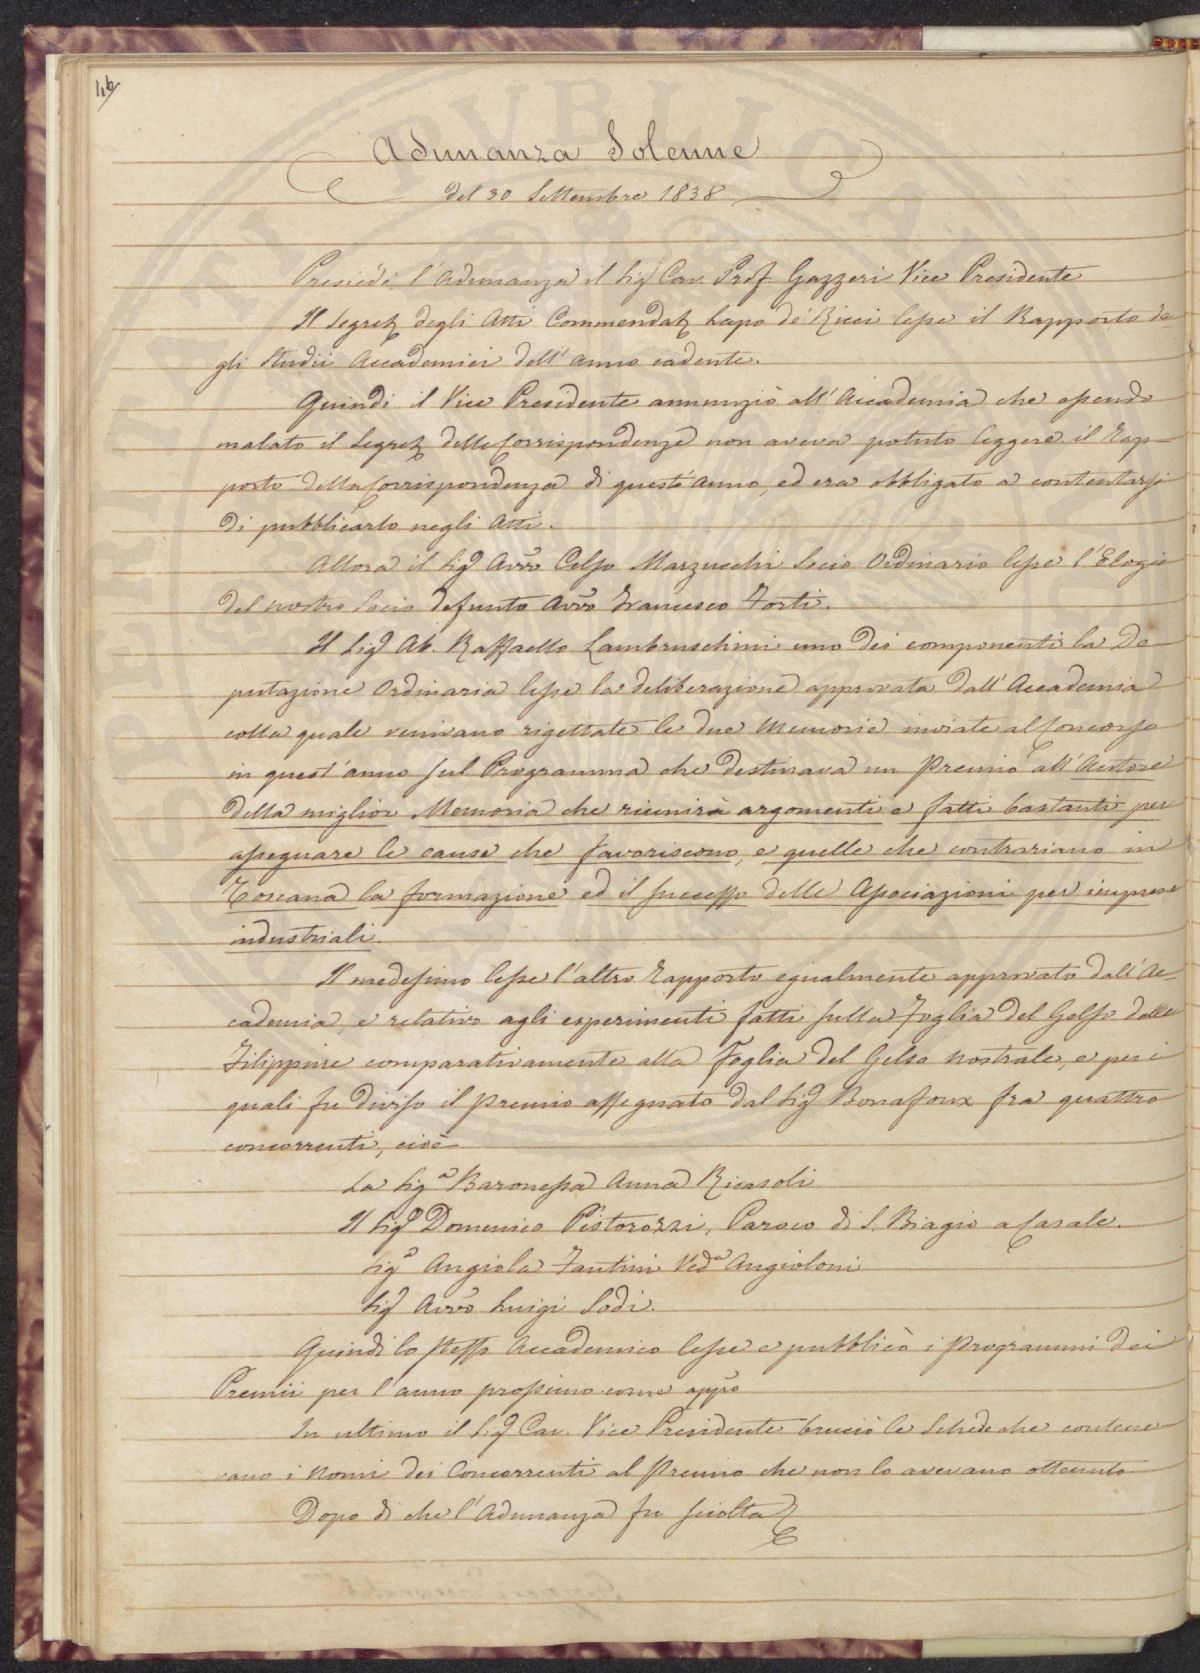 46
Adunanza Solenne
del 30 Settembre 1838
Presiedè l'adunanza il Sig. Cav. Prof. Gazzeri Vice Presidente
Il Segret. degli Atti Commendat. Lapo de' Ricci lesse il Rapporto de-
gli Studii Accademici dell'anno cadente.
Quindi il Vice Presidente annunziò all'Accademia che essendo
malato il Segret. delle Corrispondenze non aveva potuto leggere il Rap-
porto della Corrispondenza di quest'anno, ed era obbligato a contentarsi
di pubblicarlo negli Atti.
Allora il Sig. Avv.o Celso Marzucchi Socio Ordinario lesse l'Elogio
del nostro Socio defunto Avv.o Francesco Forti.
Il Sig. Ab. Raffaello Lambruschini uno dei componenti la De
putazione Ordinaria lesse la deliberazione approvata dall'Accademia
colla quale venivano rigettate le due Memorie inviate al Concorso
in quest'anno sul Programma che destinava un Premio all'Autore
della miglior Memoria che riunirà argomenti e fatti bastanti per
assegnare le cause che favoriscono, e quelle che contrariano in
Toscana la formazione ed il successo delle Associazioni per imprese
industriali.
Il medesimo lesse l'altro rapporto egualmente approvato dall'Ac-
cademia, e relativo agli esperimenti fatti sulla Foglia del Gelso delle
Filippine comparativamente alla Foglia del Gelso nostrale, e per i
quali fu diviso il premio assegnato dal Sig. Bonafoux fra quattro
concorrenti, cioè
La Sig.a Baronessa Anna Ricasoli
Il Sig. Domenico Pistorozzi, Paroco di S. Biagio a Casale.
Sig.a Angiola Fantini Ved.a Angioloni
Sig. Avv.o Luigi Sodi.
Quindi lo stesso Accademico lesse e pubblicò i programmi dei
Premii per l'anno prossimo come app.o
In ultimo il Sig. Cav. Vice Presidente bruciò le Schede che contene
vano i nomi dei Concorrenti al Premio che non lo avevano ottenuto
Dopo di che l'Adunanza fu sciolta